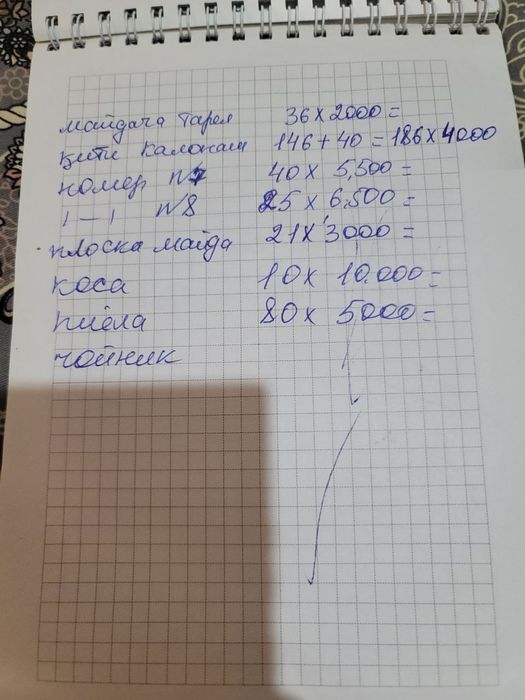 майдача тарел 36 x 2000 =
кити калонаш 146 + 40 = 186 x 4000
номер N7 40 x 5,500 =
1 — 1 N8 25 x 6.500 =
плоска майда 21 x 3000 =
коса 10 x 10.000 =
пиёла 80 x 5000 =
чойник